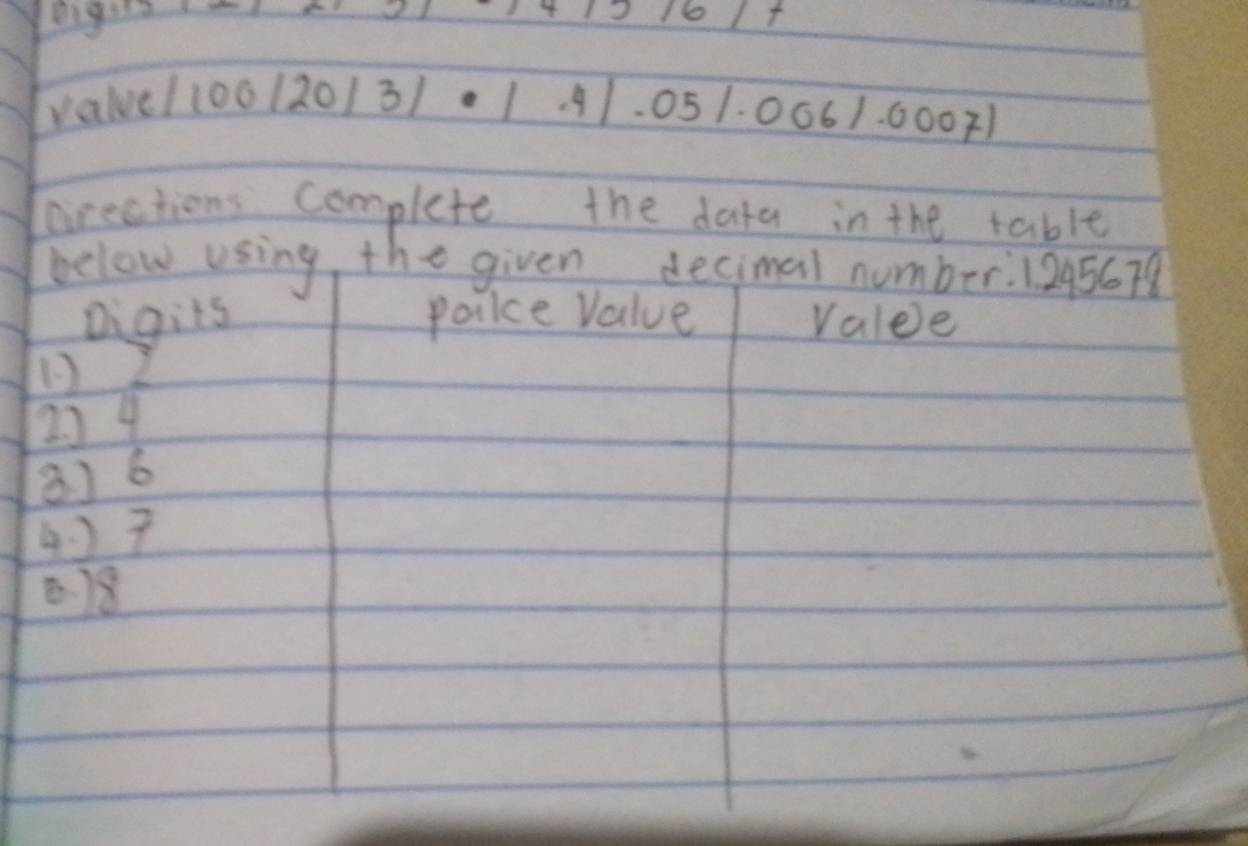 Digits 4 / 5 / 6 / 7
value / 100 / 20 / 3 / • / .4 / .05 / .006 / .0007 /
Directions Complete the data in the table
below using the given decimal number: 1.245678
Digits Palce Value Valee
1.) 2
2.) 4
3.) 6
4.) 7
5.) 8